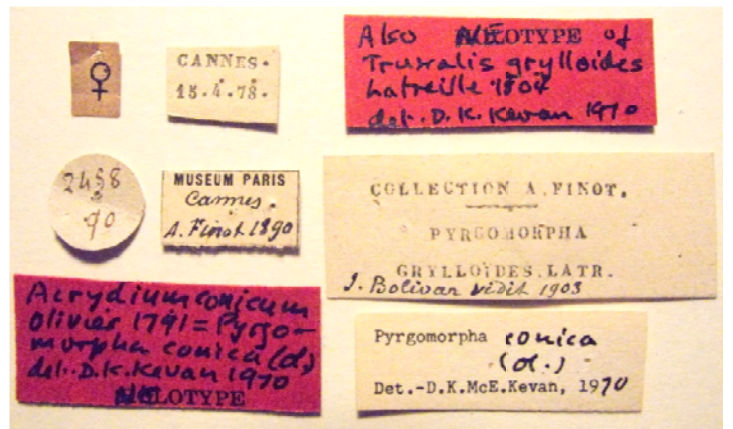 ♀
CANNES.
15.4.78.
Also NEOTYPE of
Truxalis grylloides
Latreille 1804
det. D.K. Kevan 1970
2458
90
MUSEUM PARIS
Cannes.
A. Finot 1890
COLLECTION A. FINOT.
PYRGOMORPHA
GRYLLOIDES.LATR.
I. Bolivar vidit 1903
Acrydium conicum
Olivier 1791 = Pyrgo-
morpha conica (ol.)
det. D.K. Kevan 1970
NEOTYPE
Pyrgomorpha conica
(ol.)
Det.-D.K.McE.Kevan, 1970